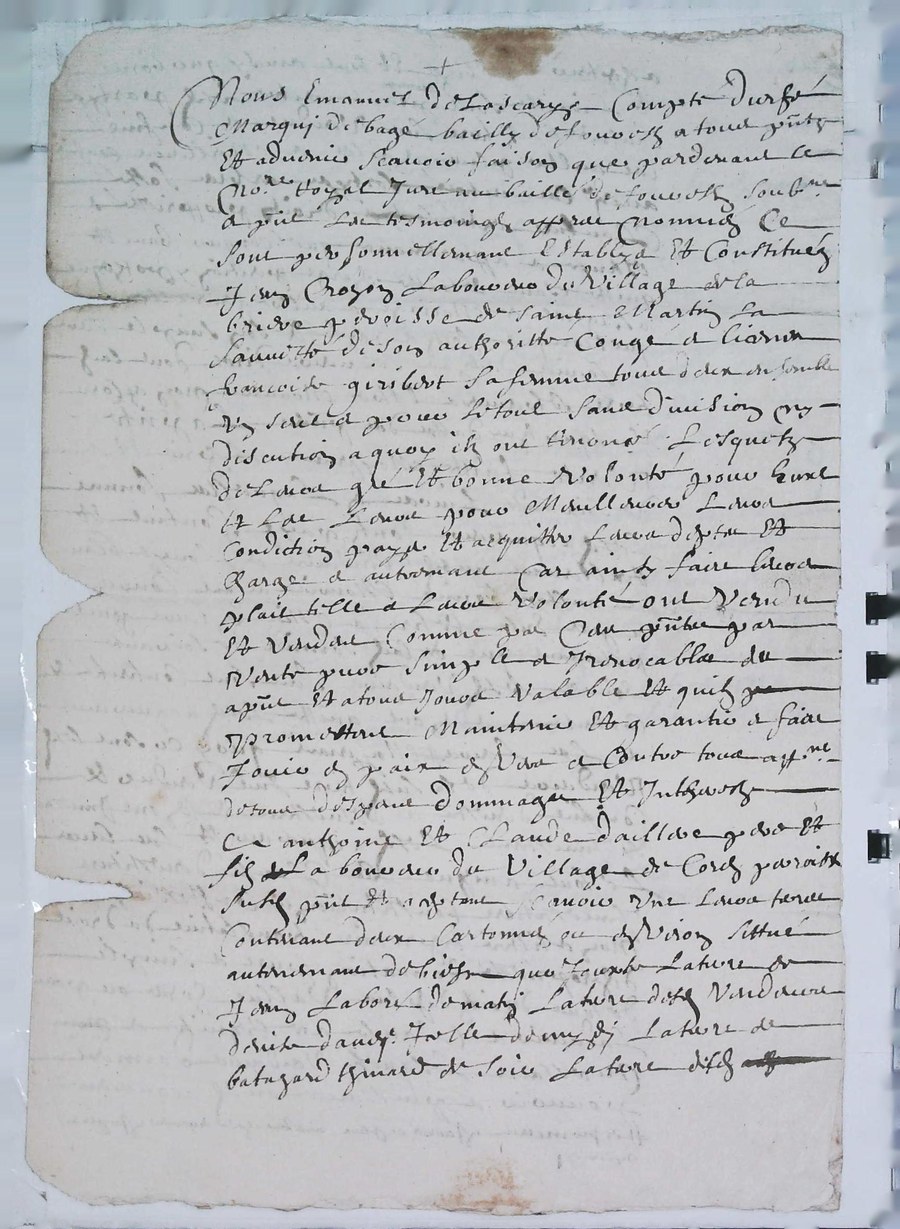 Nous Emanuel de Lascarys Compte Durfé
Marquj de bagé bailly de fourestz a tous pntz
Et advenir scavoir faisons que pardevant le
No.re Royal Juré au bailliage de fourestz soub.né
e pnt les tesmoingtz appres nommés Ce
sont personnellement Establys Et Constitués
Jean Croyon Laboureur du Village de la
briere paroisse de Saint Martin La
Sauvetté de son authoritté Congé e licence
francoise giribert sa femme tous deux ensemble
Un seul e pour le tout sans division ny
discution a quoy ilz ont renoncé Lesquelz
de Leurs gré Et bonne Volonté pour Eux
Et Les Leurs pour Meilleures Leurs
Condition payer Et acquitter Leurs deptes Et
Charges e autrement Car ainsy faire Leurs
plait telle e Leurs Volonté ont Vendu
Et Vendent Comme par Ces pntes par
Vente pure simple e Irrevocable de
apnt Et a tous Jours Valable Et quilz
promettent Maintenir Et garantir e faire
Jouir en paix envers e Contre tous
de tous despens dommages Et Intherestz
A anthoine Et Claude daillere pere Et
filz Laboureurs du Village de Cors paroisse
pnt Et acceptant scavoir Une Leurs terre
Contenant deux Cartonnés ou environ sittué
au terrement de bies que Jouxte La terre de
Jean Laboré de matin La terre desd Vendeurs
de midj La terre de
de soir La terre desd